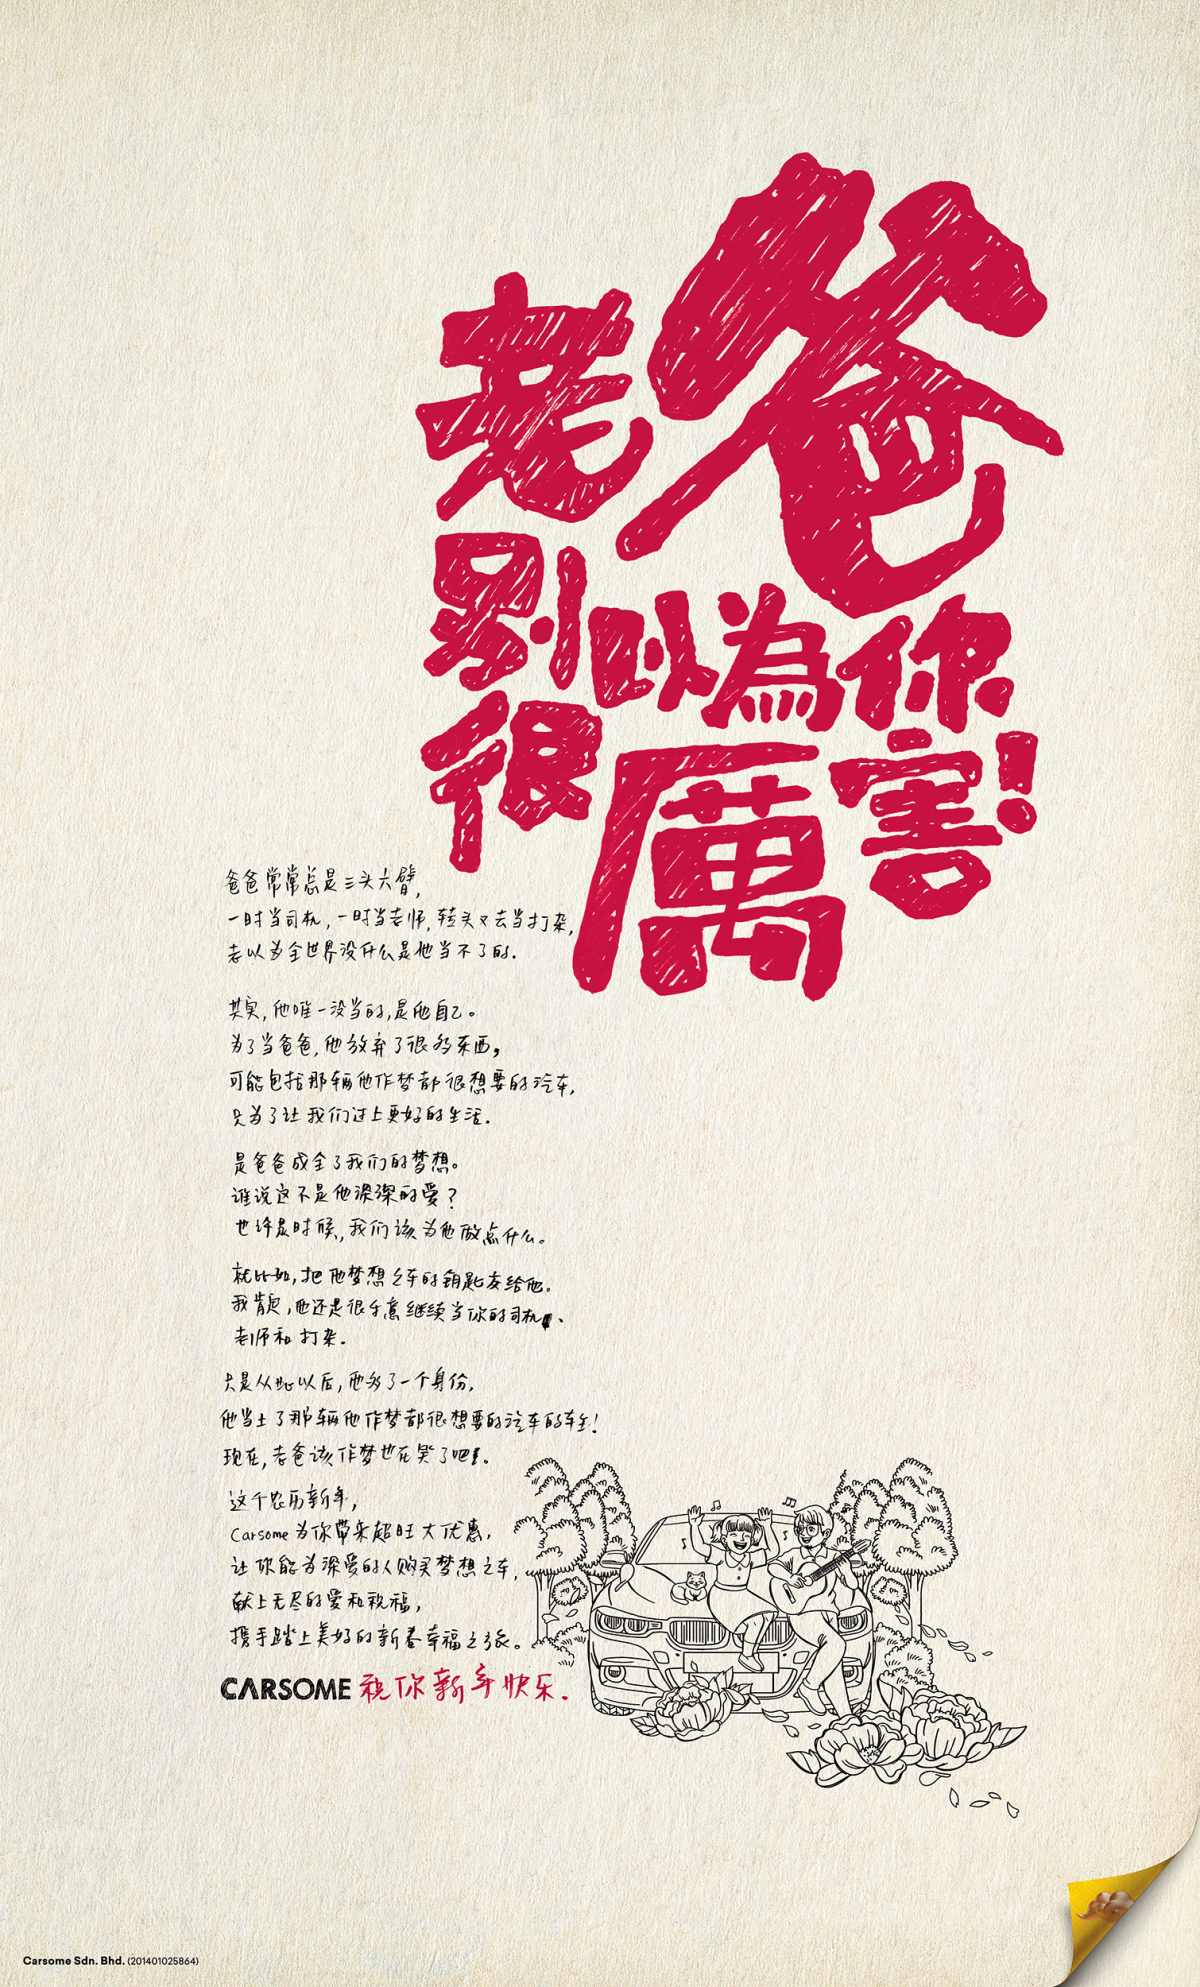 老爸
別以為你
很厲害!
爸爸常常总是三头六臂,
一时当司机,一时当老师,转头又去当打杂,
老以为全世界没什么是他当不了的.
其实,他唯一没当的,是他自己。
为了当爸爸,他放弃了很多东西,
可能包括那辆他作梦都很想要的汽车,
只为了让我们过上更好的生活.
是爸爸成全了我们的梦想。
谁说这不是他深深的爱?
也许是时候,我们该为他做点什么。
就比如,把他梦想之车的钥匙交给他.
我肯定,他还是很乐意继续当你的司机、
老师和打杂.
只是从此以后,他多了一个身份,
他当上了那辆他作梦都很想要的汽车的车主!
现在,老爸该作梦也在笑了吧!.
这个农历新年,
Carsome为你带来超旺大优惠,
让你能为深爱的人购买梦想之车,
献上无尽的爱和祝福,
携手踏上美好的新春幸福之旅。
CARSOME 祝你新年快乐.
Carsome Sdn. Bhd. (201401025864)